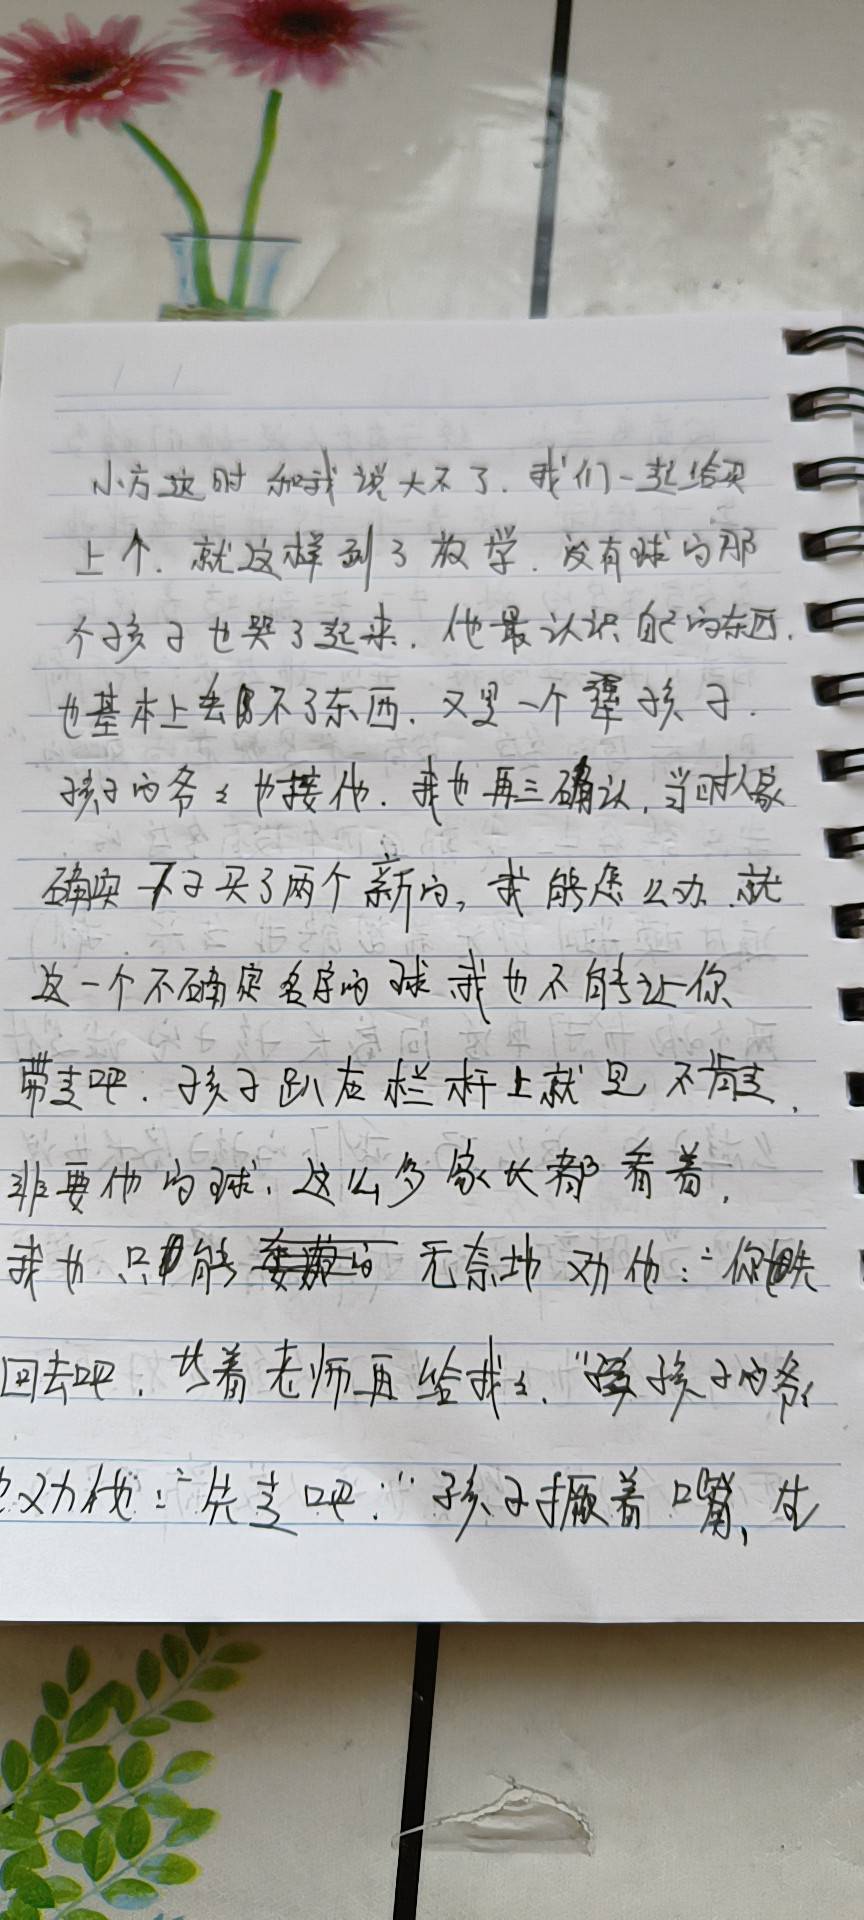 小方这时和我说大不了.我们一起给买
上个.就这样到了放学.没有球的那
个孩子也哭了起来.他最认识自己的东西.
也基本上丢不了东西.又是一个犟孩子.
孩子的爷々也接他.我也再三确认,当时人家
确实一下子买了两个新的,我能怎么办.就
这一个不确定名字的球我也不能让你
带走吧.孩子趴在栏杆上就是不肯走.
非要他的球,这么多家长都看着,
我也只能无奈地劝他:“你先
回去吧.等着老师再给找々.”犟孩子的爷々
也劝他:“先走吧:”孩子撅着嘴,在